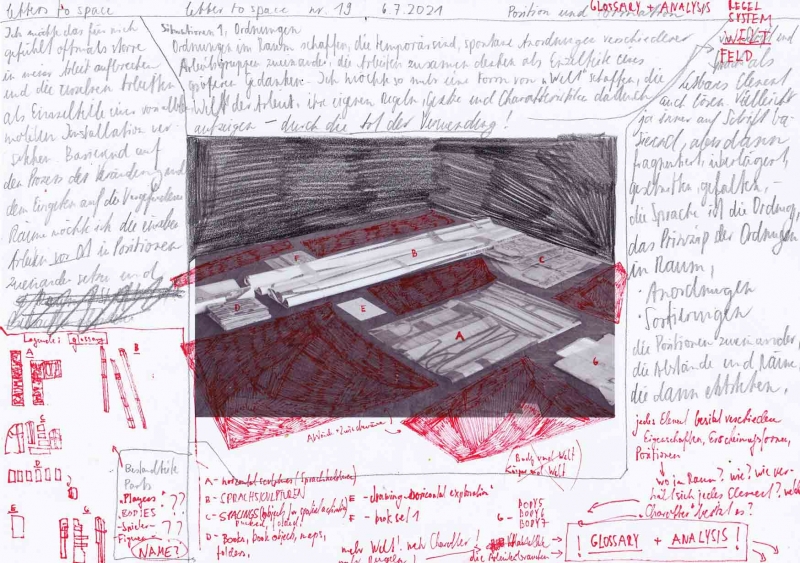 letters to space
letter to space nr. 19 6.7.2021
Position und Formation
GLOSSARY + ANALYSIS
REGEL
SYSTEM
WELT
FELD
Ich möchte das für mich
gefühlt oftmals starre
in meiner Arbeit aufbrechen
und die einzelnen Arbeiten
als Einzelteile einer
Installation
Basierend auf
den Prozess des
dem Eingehen auf die vorgefundenen
Räume möchte ich die einzelnen
Arbeiten vor Ort in Positionen
zueinander setzen und
Situationen 1: Ordnungen
Ordnungen im Raum schaffen, die temporär sind, spontane Anordnungen verschiedener
Arbeitsgruppen zueinander, die Arbeiten zusammen denken als Einzelteile eines
größeren Gedanken. Ich möchte so mehr eine Form von „Welt" schaffen, die
Welt der Arbeit, ihre eigenen Regeln, Gesetze und Charakteristiken dadurch
aufzeigen – durch die Art der Verwendung!
als
lesbares Element
auch lösen. Vielleicht
ja immer auf Schrift ba-
sierend, aber dann
fragmentiert, überlagert,
geschnitten, gefalten, –
die Sprache ist die Ordnung,
das Prinzip der Ordnungen
im Raum,
· Anordnungen
· Sortierungen
die Positionen zueinander,
die Abstände und Räume,
die dann entstehen.
F
B
C
D
E
A
G
Legende: glossary
A
B
C
D
E
F
G
Bestandteile
Parts
„Players" ?
„BODIES" ??
– Spieler – ??
– Figuren –
NAME?
A – horizontal sculptures
B – SPRACHSKULPTUREN
C – SPACINGS (objects for spatial activity)
D – Books, book objects, maps,
folders,
E – drawing „horizontal exploration"
F – book set 1
G – BODY5
BODY6
BODY7
Body und Welt
Körper und Welt
jedes Element besitzt verschiedene
Eigenschaften, Erscheinungsformen,
Positionen
wo im Raum? wie? wie ver-
hält sich jedes Element?
Charakter besitzt es?
mehr Welt! mehr Charakter!
! GLOSSARY + ANALYSIS !